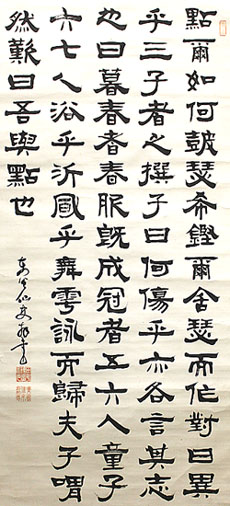 點爾如何皷瑟希鏗爾舍瑟而作對曰異
乎三子者之撰子曰何傷乎亦各言其志
也曰暮春者春服既成冠者五六人童子
六七人浴乎沂風乎舞雩詠而歸夫子喟
然歎曰吾與點也